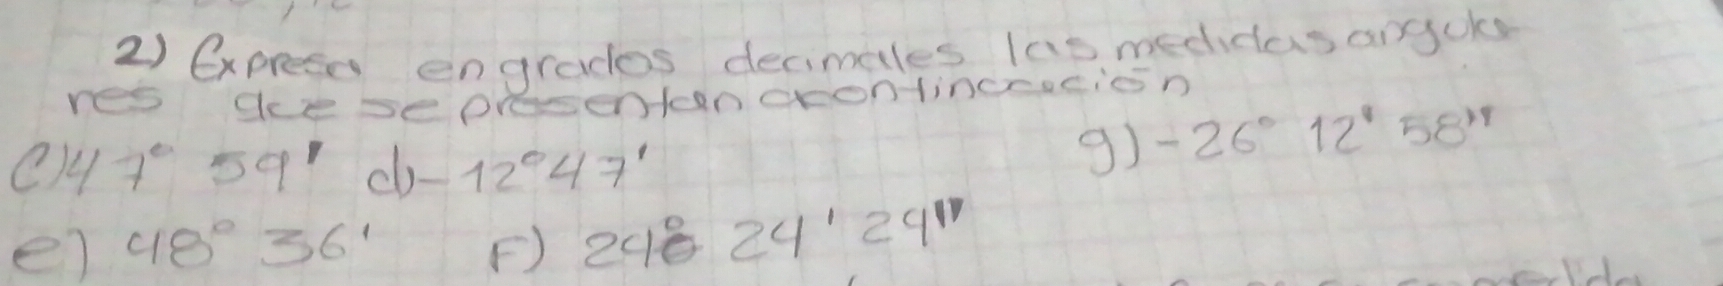 2) Expresa en grados decimales las medidas angula
res que se presentan a continuación
c) 47° 59' d) -12° 47'
g) -26° 12' 58"
e) 48° 36' F) 248° 24' 29"